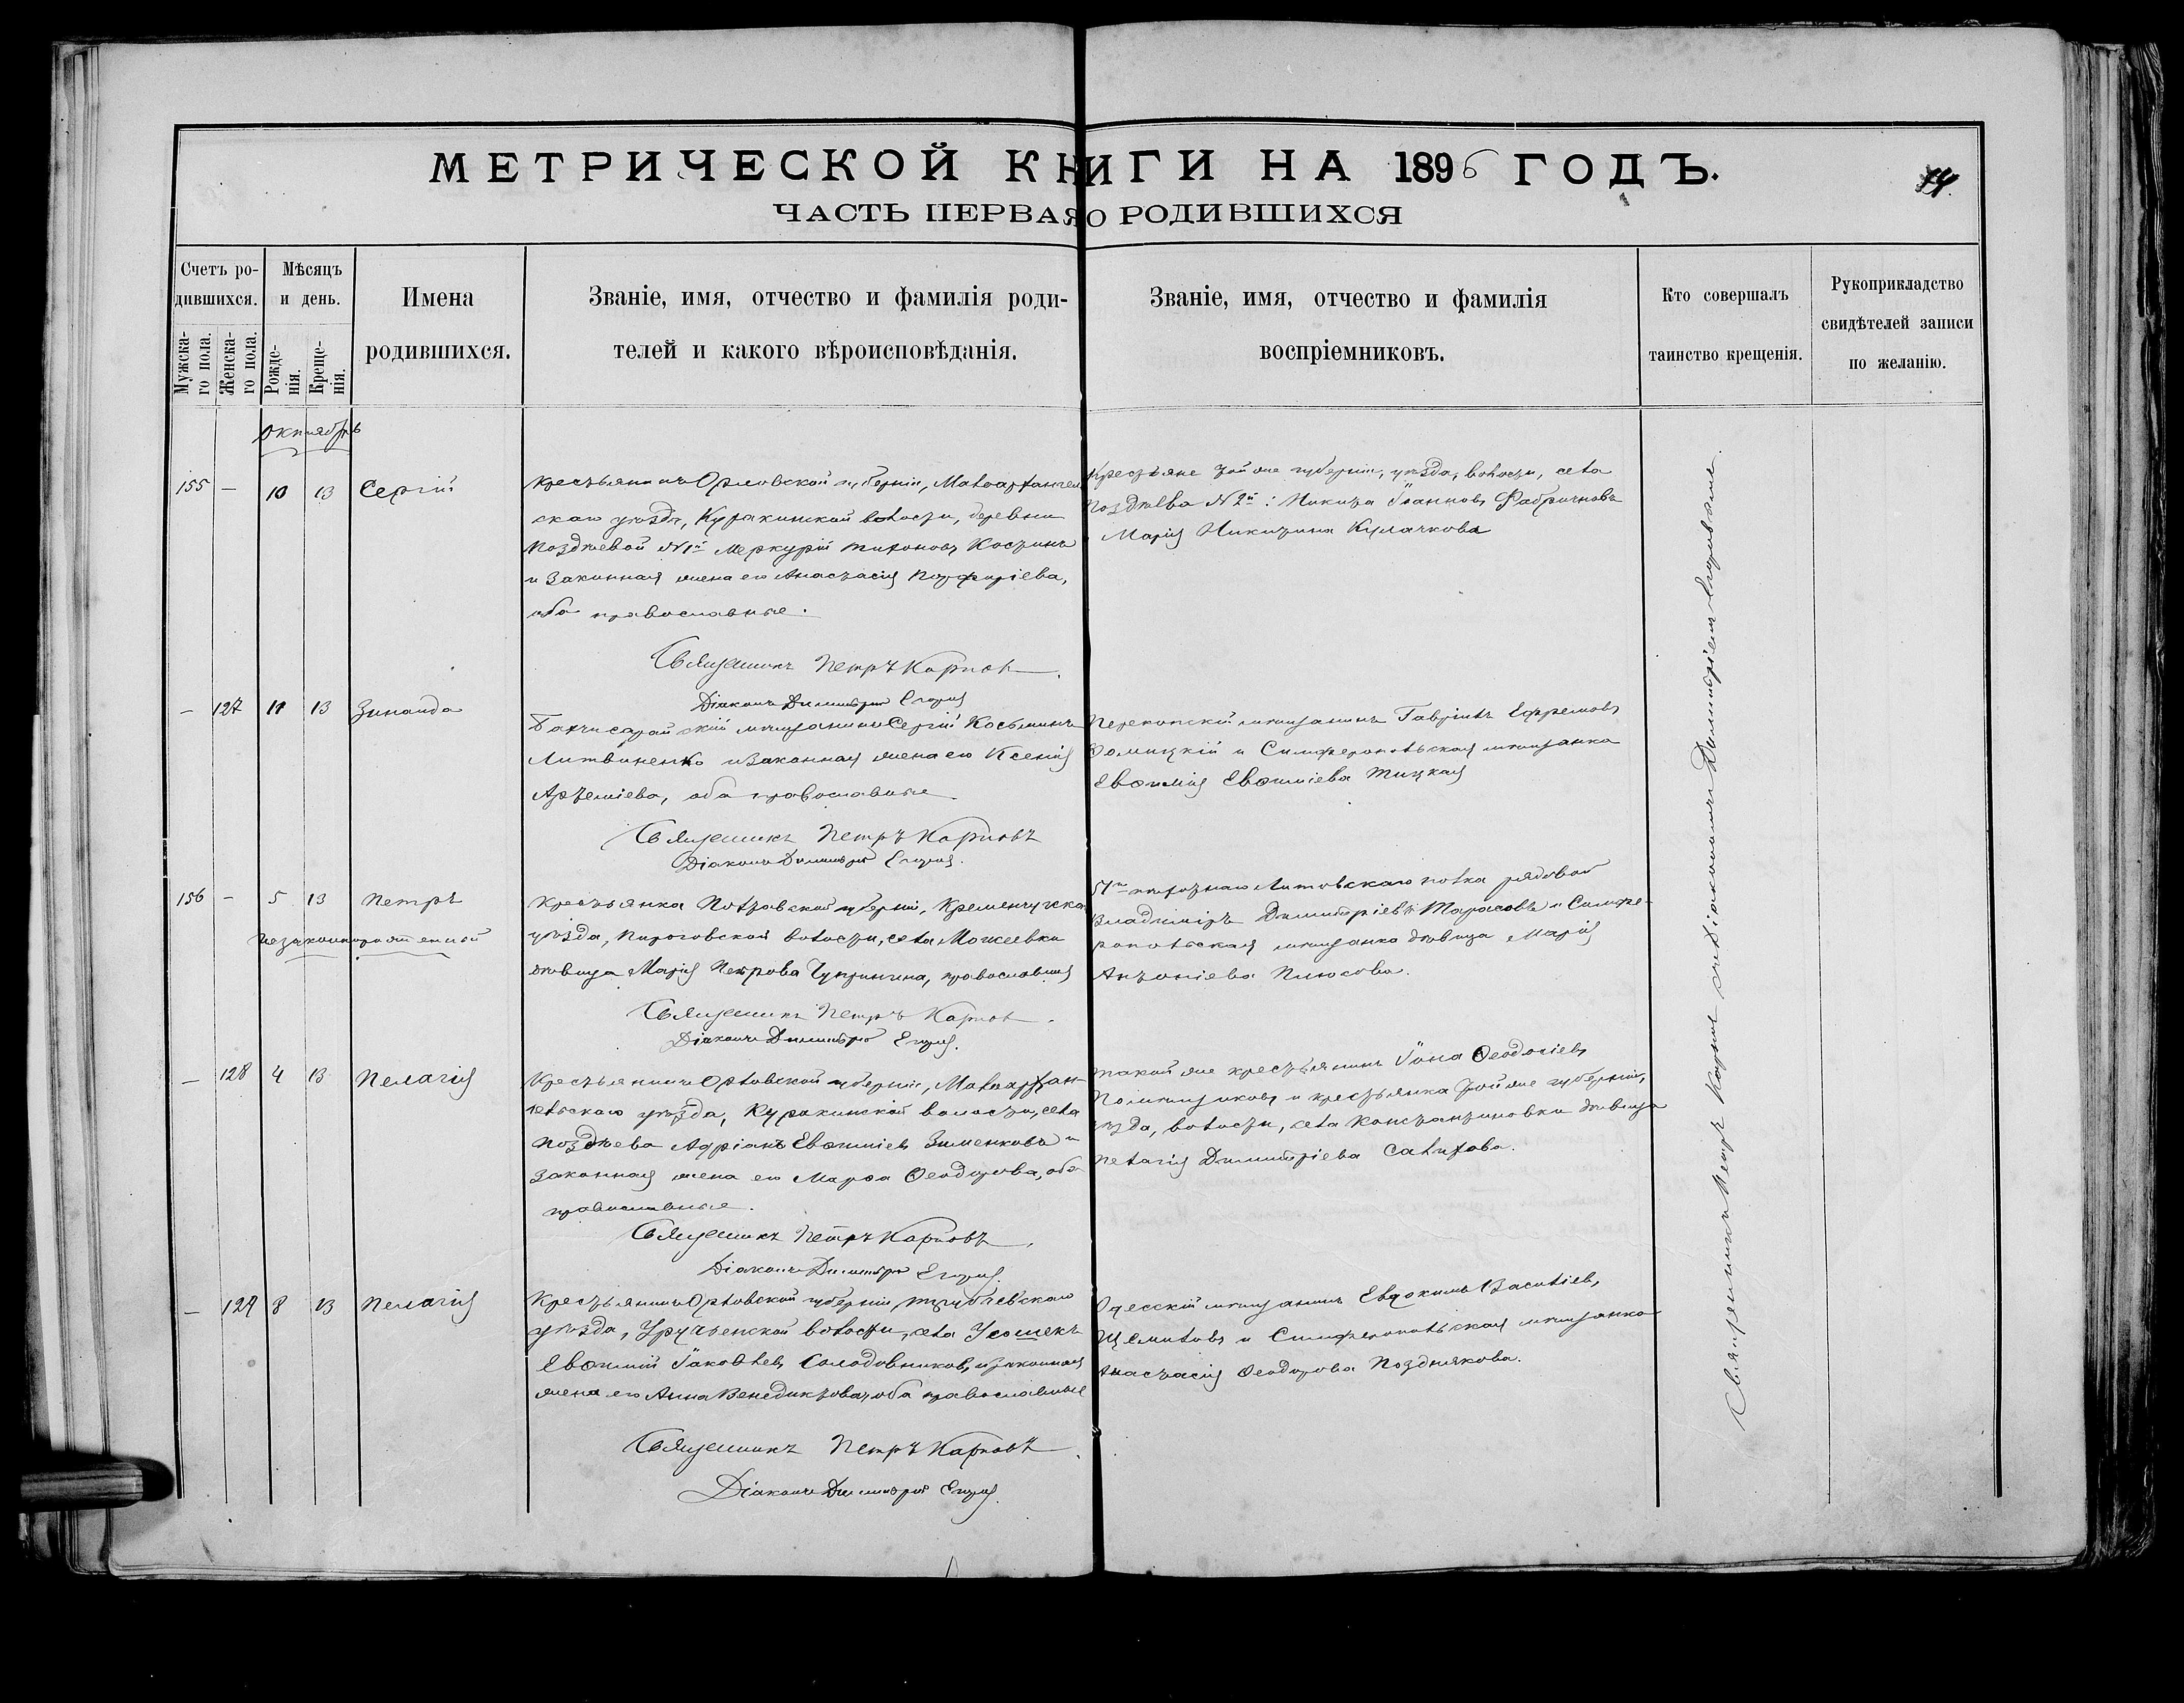 МЕТРИЧЕСКОЙ КНИГИ НА 1896 ГОДЪ.
ЧАСТЬ ПЕРВАЯ О РОДИВШИХСЯ
Счетъ ро-
дившихся.
Мужска-
го пола.
Женска-
го пола.
Мѣсяцъ
и день.
Рожде-
нія.
Креще-
нія.
Имена
родившихся.
Званіе, имя, отчество и фамилія роди-
телей и какого вѣроисповѣданія.
Званіе, имя, отчество и фамилія
воспріемниковъ.
Кто совершалъ
таинство крещенія.
Рукоприкладство
свидѣтелей записи
по желанію.
Октябрь
155 – 10 13 Сергій
Крестьянинъ Орловской губерніи, Малоархангель
скаго уѣзда, Куракинской волости, деревни
Позднѣевой №1й Меркурій Тихоновъ Костинъ
и законная жена его Анастасія Порфиріева,
оба православные.
Крестьяне той же губерніи, уѣзда, волости, села
Позднѣева №2й: Никита Іоанновъ Фабричновъ
Марія Никитина Кулачкова
Священникъ Петръ Карпов
Діаконъ Димитрій
– 127 11 13 Зинаида
Бахчисарайскій мѣщанинъ Сергій Косьминъ
Литвиненко и законная жена его Ксенія
Артеміева, оба православные
Перекопскій мѣщанинъ Гавріилъ Ефремовъ
и Симферопольская мѣщанка
Евѳимія Евѳиміева
Священникъ Петръ Карповъ
Діаконъ Димитрій
156 – 5 13 Петръ
незаконнорожденной
Крестьянка Полтавской губерніи, Кременчугска
уѣзда, Пироговской волости, села Можеевки
дѣвица Марія Петрова православная
51го пѣхотнаго Литовскаго полка рядовой
Владиміръ Димитріевъ Тарасовъ и Симфе-
ропольская мѣщанка дѣвица Марія
Антоніева Плюсова.
Священникъ Петръ Карпов
Діаконъ Димитрій
– 128 4 13 Пелагія
Крестьянинъ Орловской губерніи, Малоархан-
гельскаго уѣзда, Куракинской волости, села
Позднѣева Адріанъ Евѳиміевъ Зименковъ и
законная жена его Марѳа Ѳеодорова, оба
православные.
Такой же крестьянинъ Іона Ѳеодосіевъ
Помѣщиковъ и крестьянка той же губерніи,
уѣзда, волости, села Константиновки дѣвица
Пелагія Димитріева Салихова.
Священникъ Петръ Карповъ
Діаконъ Димитрій
– 129 8 13 Пелагія
Крестьянинъ Орловской губерніи Трубчевскаго
уѣзда, Уручьенской волости, села Усошекъ
Евѳимій Іаковлевъ Солодовниковъ и законная
жена его Анна Венедиктова, оба православные
Одесскій мѣщанинъ Евдокимъ Василіевъ
Щемиловъ и Симферопольская мѣщанка
Анастасія Ѳеодорова Позднякова.
Священникъ Петръ Карповъ
Діаконъ Димитрій
Священникъ Петръ Карповъ съ Діакономъ Димитріемъ